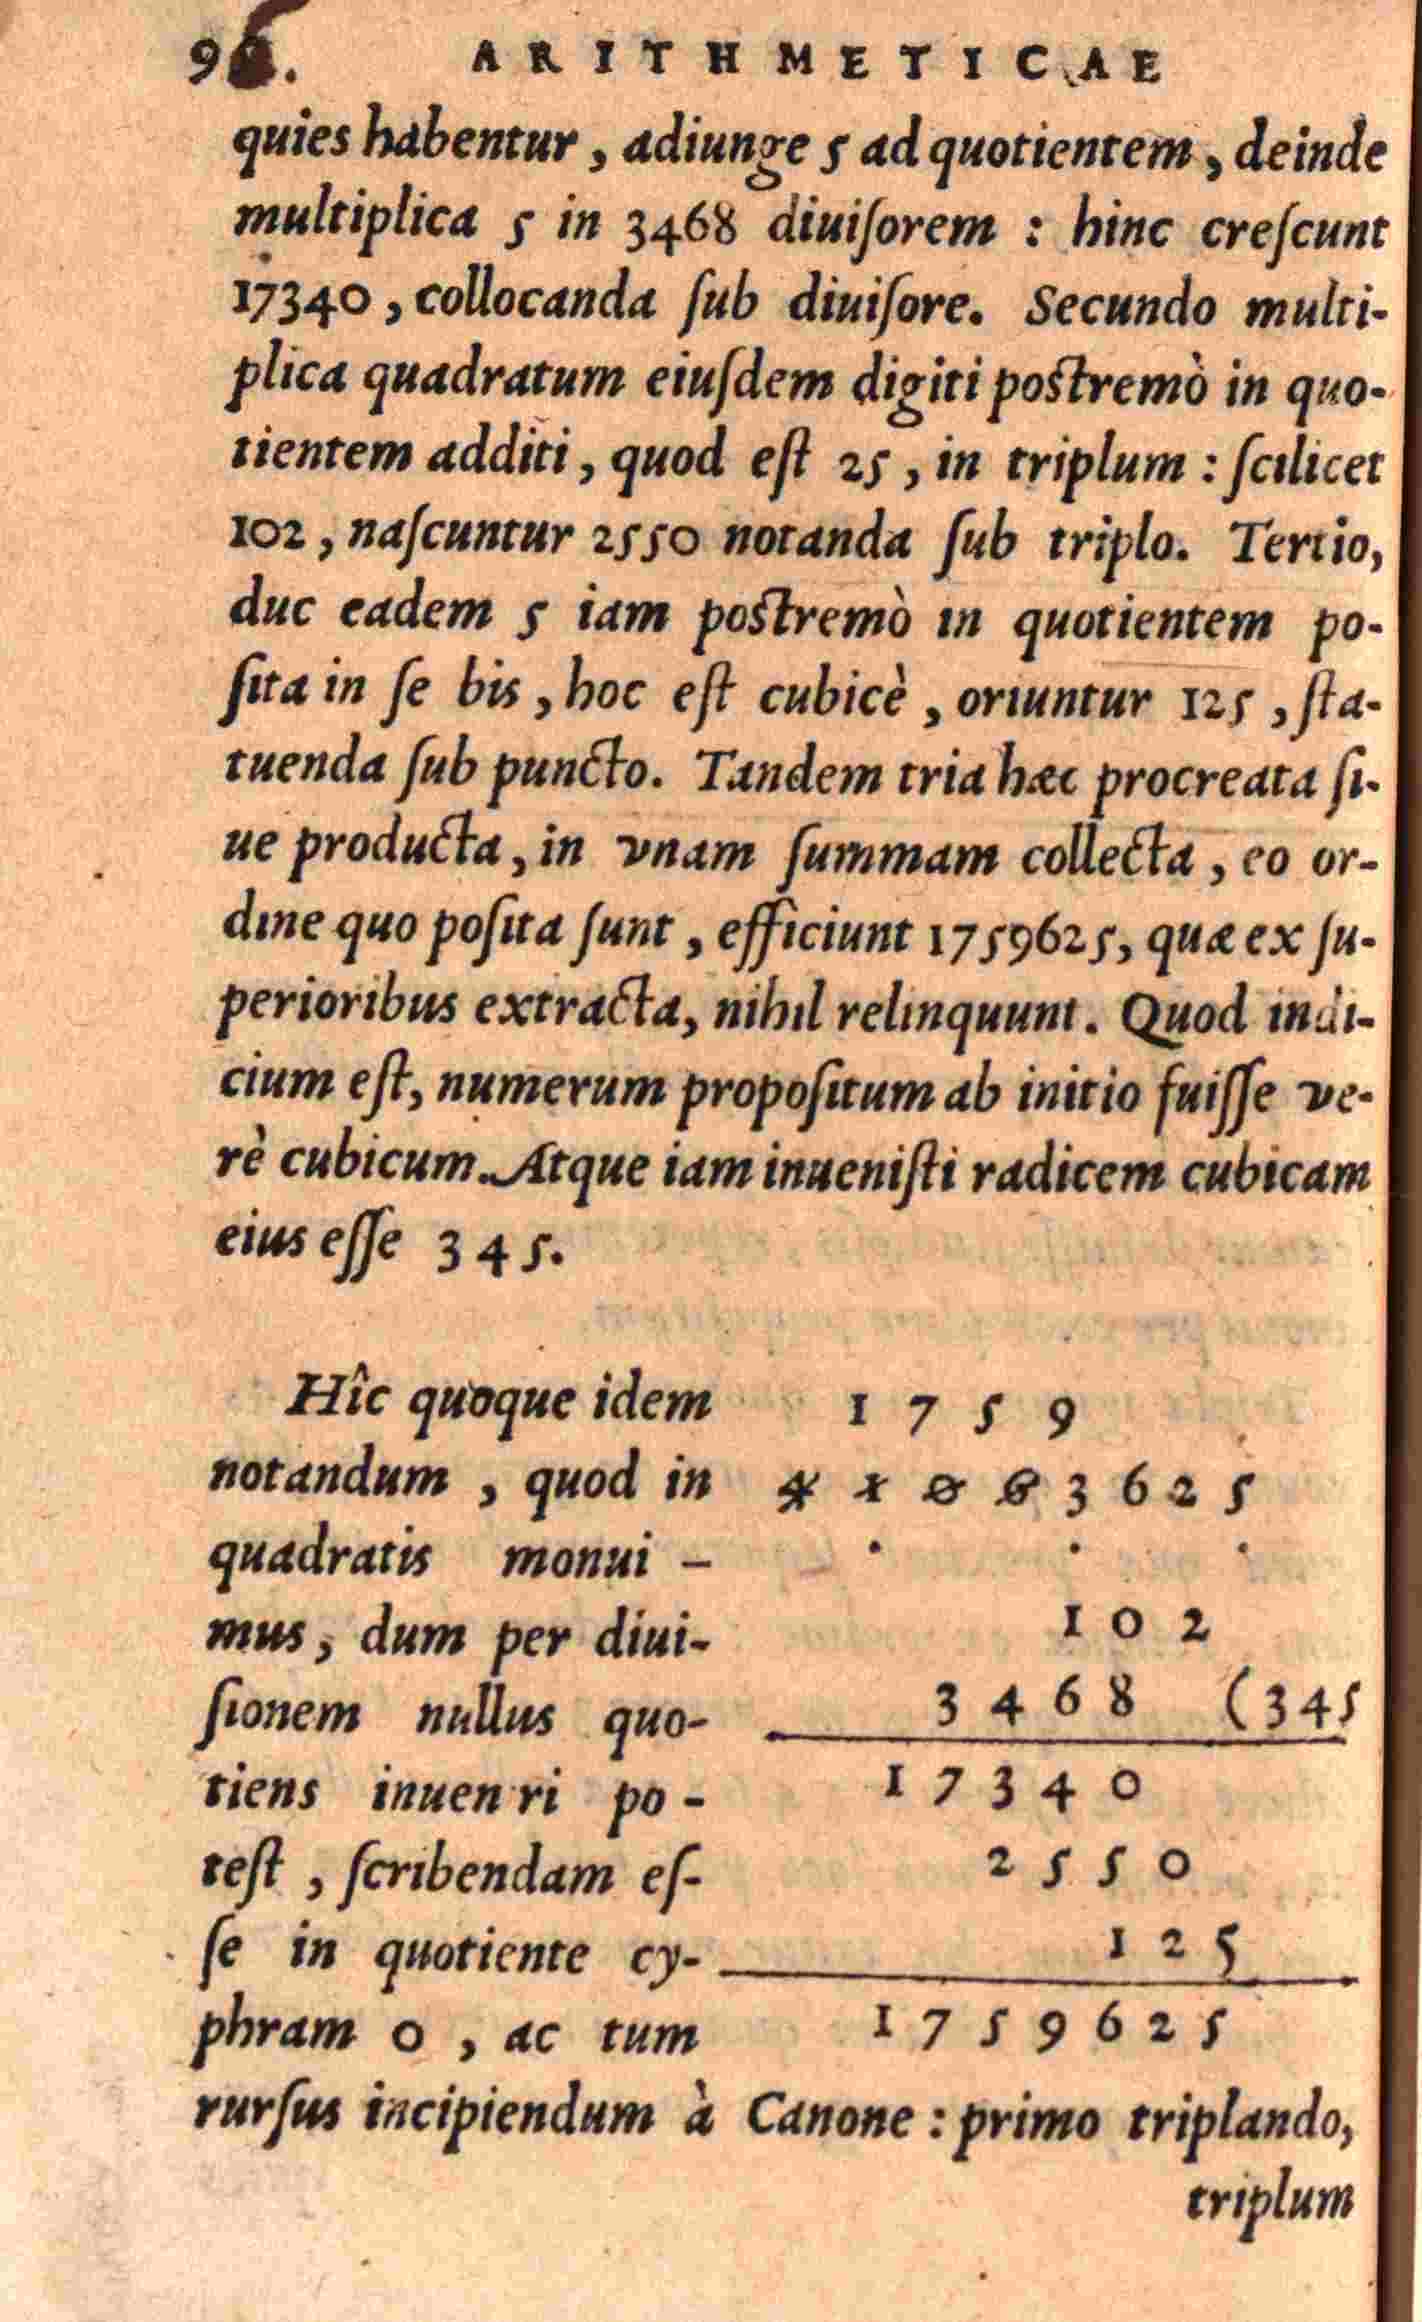 96. ARITHMETICAE
quies habentur, adiunge 5 ad quotientem, deinde
multiplica 5 in 3468 diuiſorem : hinc creſcunt
17340, collocanda ſub diuiſore. Secundo multi-
plica quadratum eiuſdem digiti poſtremò in quo-
tientem additi, quod eſt 25, in triplum : ſcilicet
102, naſcuntur 2550 notanda ſub triplo. Tertio,
duc eadem 5 iam poſtremò in quotientem po-
ſita in ſe bis, hoc eſt cubicè, oriuntur 125, ſta-
tuenda ſub puncto. Tandem tria hæc procreata ſi-
ue producta, in vnam ſummam collecta, eo or-
dine quo poſita ſunt, efficiunt 1759625, quæ ex ſu-
perioribus extracta, nihil relinquunt. Quod indi-
cium eſt, numerum propoſitum ab initio fuiſſe ve-
rè cubicum. Atque iam inueniſti radicem cubicam
eius eſſe 345.
Hîc quoque idem
notandum, quod in
quadratis monui-
mus, dum per diui-
ſionem nullus quo-
tiens inuenri po-
teſt, ſcribendam eſ-
ſe in quotiente cy-
phram 0, ac tum
1 7 5 9
4 1 0 6 3 6 2 5
. . .
1 0 2
3 4 6 8 (345
1 7 3 4 0
2 5 5 0
1 2 5
1 7 5 9 6 2 5
rurſus incipiendum à Canone : primo triplando,
triplum